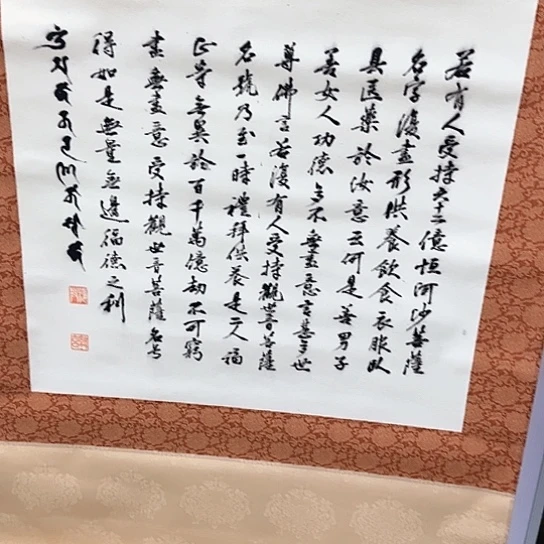 若有人受持六十二億恒河沙菩薩
名字復盡形供養飲食衣服臥
具医藥於汝意云何是善男子
善女人功德多不無盡意言甚多世
尊佛言若復有人受持觀世音菩薩
名號乃至一時禮拜供養是二人福
正等無異於百千萬億劫不可窮
盡無盡意受持觀世音菩薩名号
得如是無量無邊福德之利